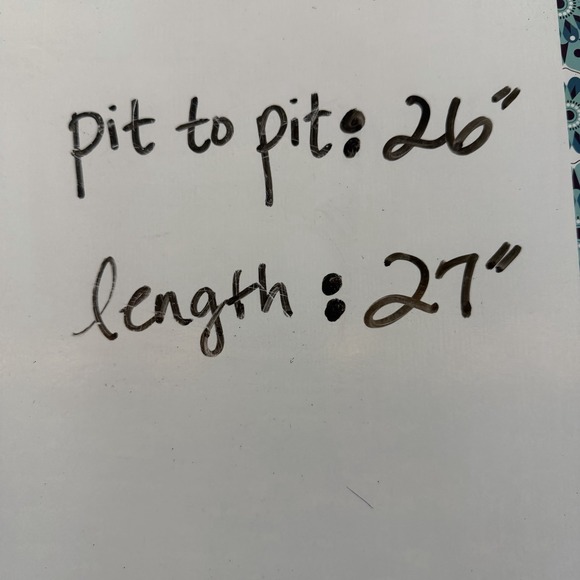 pit to pit: 26"
length: 27"